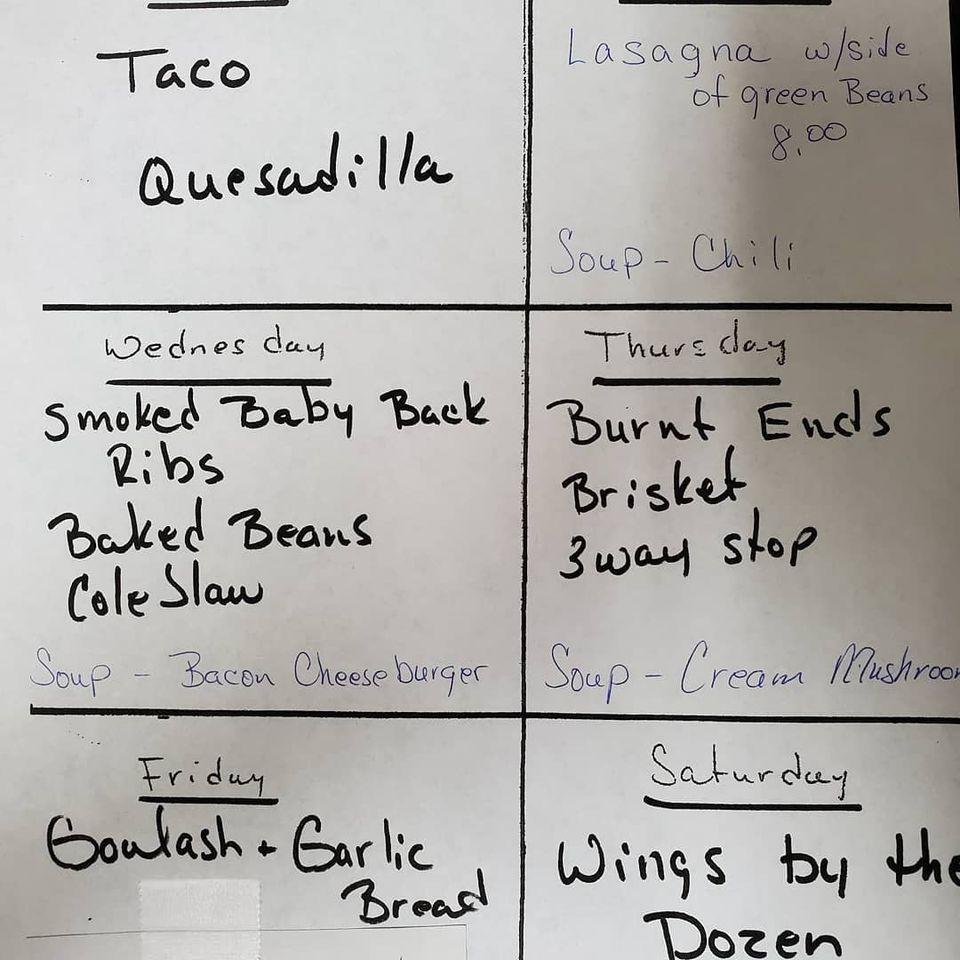 Taco
Quesadilla
Lasagna w/side
of green Beans
8.00
Soup - Chili
Wednesday
Smoked Baby Back
Ribs
Baked Beans
Cole Slaw
Soup - Bacon Cheeseburger
Thursday
Burnt Ends
Brisket
3way stop
Soup - Cream Mushroom
Friday
Goulash + Garlic
Bread
Saturday
Wings by the
Dozen